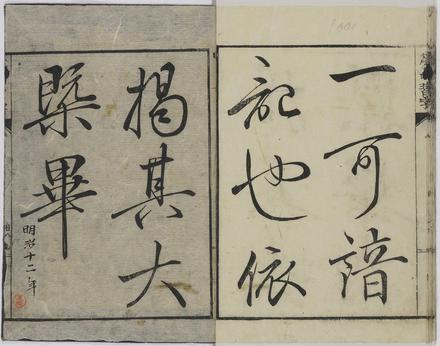 一可諳
記也依
揭其大
槩畢
明治十二年